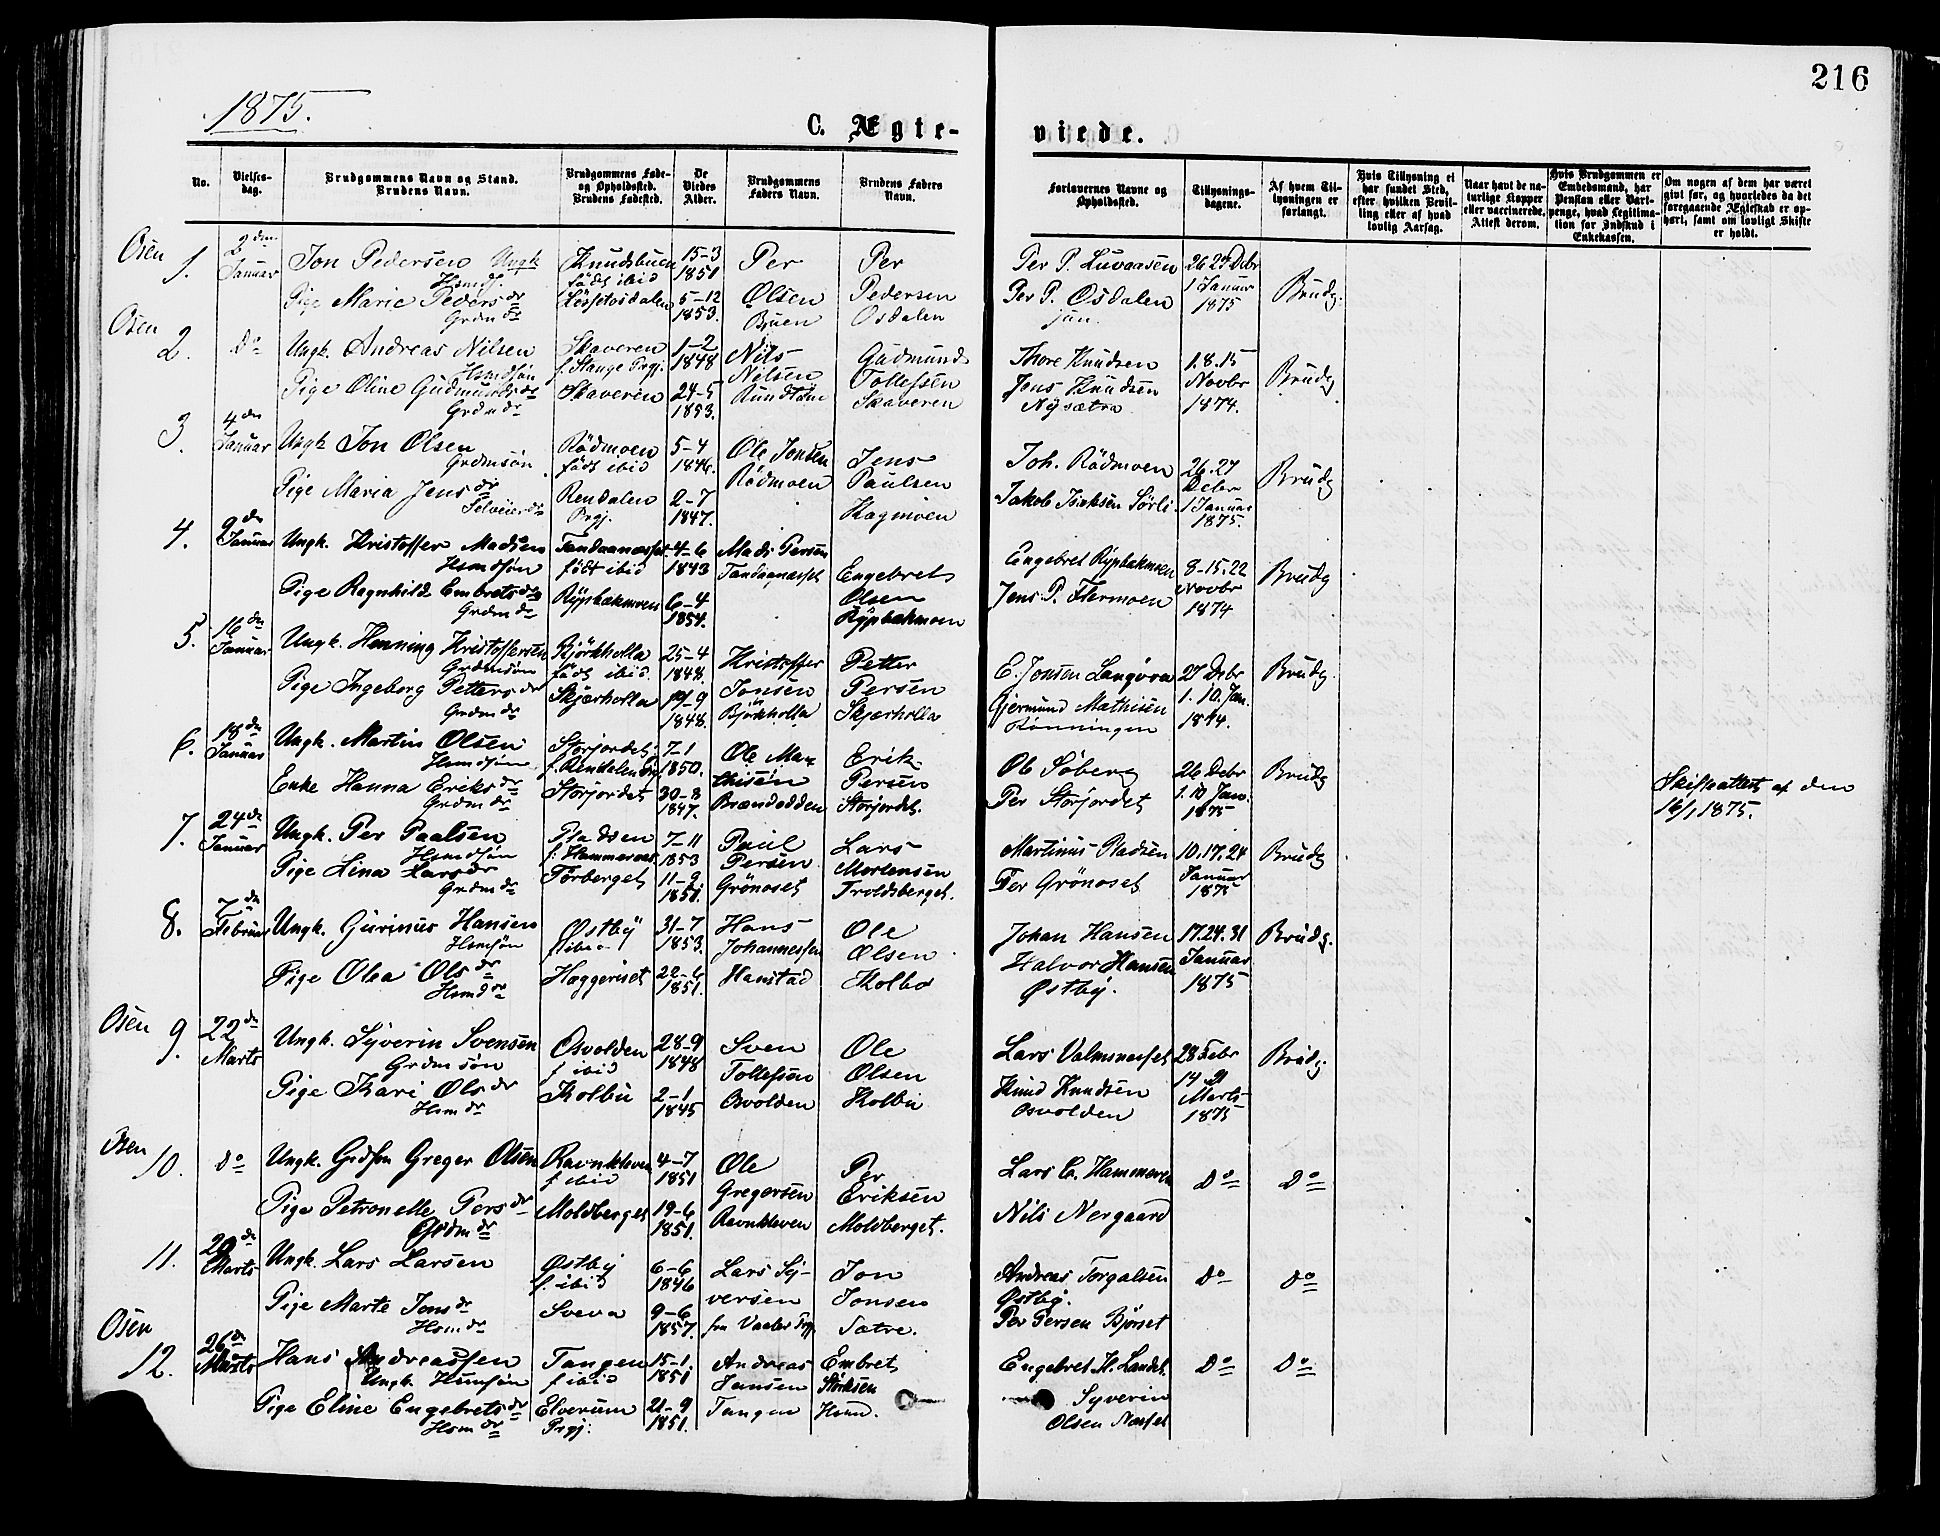 216
1875.
C. Ægte-
viede.
No.
Vielses-
dag.
Brudgommens Navn og Stand.
Brudens Navn.
Brudgommens Føde-
og Opholdssted.
Brudens Fødested.
De
Viedes
Alder.
Brudgommens
Faders Navn.
Brudens Faders
Navn.
Forlovernes Navne og
Opholdssted.
Tillysnings-
dagene.
Af hvem Til-
lysningen er
forlangt.
Hvis Tillysning ei
har fundet Sted,
efter hvilken Bevil-
ling eller af hvad
lovlig Aarsag.
Naar havt de na-
turlige Kopper
eller vaccinerede.
Attest derom.
Hvis Brudgommen er
Embedsmand, har
Pension eller Vart-
penge, hvad Legitima-
tion for Indskud i
Enkekassen.
Om nogen af dem har været
givt før, og hvorledes da det
foregaaende Ægteskab er op-
hørt, samt om lovligt Skifte
er holdt.
Osen
1.
2den
Januar
Jon Pedersen Ungk
Hsmds.
Pige Marie Pedersdr
Grdmdr
Knudsbuen
født ibid
15-3
1851
5-12
1853.
Per
Olsen
Buen
Per
Pedersen
Osdalen
Per P. Luvaasen
Per P. Osdalen
jun.
26 27 Debr
1 Januar
1875
Brudg.
Osen
2.
Do
Ungk. Andreas Nilsen
Hsmdsøn
Pige Oline Gudmundsdr
Grdmdr
Skaveren
f. Stange Prgj.
Skaveren
1-2
1848
24-5
1853.
Nils
Nilsen
Gudmund
Tollefsen
Skaveren
Thore Knudsen
Jens Knudsen
Nysætra
1.8.15
Novbr
1874.
Brudg
3.
4de
Januar
Ungk Jon Olsen
Grdmsøn
Pige Maria Jensdr
Selveierdr
Rødmoen
født ibid
Rendalen
Prgj.
5-4
1846.
2-7
1847.
Ole Jonsen
Rødmoen
Jens
Paulsen
Hagmoen
Joh. Rødmoen
Jakob Isaksen Sørli
26.27
Debr
1 Januar
1875.
Brudg
4.
9de
Januar
Ungk. Kristoffer Madsen
Hsmdsøn
Pige Ragnhild Embretsdr
Grdmdr
Tandaanæsset
født ibid
Rypbakmoen
4-6
1843
6-4
1854.
Mads Persen
Tandaanæsset
Engebret
Olsen
Rypbakmoen
Engebret Rypbakmoen
Jens P. Flermoen
8-15.22
Novbr
1874
Brudg
5.
16de
Januar
Ungk. Henning Kristoffersen
Grdmsøn
Pige Ingeborg Pettersdr
Grdmdr
Bjørkholla
født ibid.
Skjærholla
25-4
1848.
19-9
1848.
Kristoffer
Jonsen
Bjørkholla
Petter
Persen
Skjærholla
E. Jonsen Langvea
Gjermund Mathisen
Rønningen
27 Debr
1. 10. Jan.
1874.
Brudg.
6.
18de
Januar
Ungk. Martin Olsen
Hsmdsøn
Enke Hanna Eriksdr
Grdmdr
Storjordet
f. Rendalen Prgj.
Storjordet
7-1
1850.
30-8
1847.
Ole Ma-
thisen
Brændodden
Erik
Persen
Storjordet.
Ol. Søberg
Per Storjordet
26 Debr
1. 10 Jan.
1875
Brudg
Skifteattest af den
16/1 1875.
7.
24de
Januar
Ungk. Per Paalsen
Hsmdsøn
Pige Lina Larsdr
Grdmdr
Pladsen
f. Hammernæs
Torberget
7-11
1853
11-2
1851.
Paul
Persen
Grønoset
Lars
Mortensen
Troldsberget.
Martinus Pladsen
Per Grønoset
10.17.24
Januar
1875
Brudg
8.
7de
Februar
Ungk. Gurinus Hansen
Hsmsøn
Pige Olea Olsdr
Hsmdr
Østby
f ibid
Haggeriset
31-7
1853.
22-6
1851.
Hans
Johannessen
Hanstad
Ole
Olsen
Kolbo
Johan Hansen
Halvor Hansen
Østby.
17.24.31
Januar
1875
Brudg.
Osen
9.
22de
Marts
Ungk. Syverin Svensen
Grdmsøn
Pige Kari Olsdr
Hsmdr
Osvolden
f ibid
Kolbu
28-9
1848
2-1
1845
Sven
Tollefsen
Osvolden
Ole
Olsen
Kolbu
Lars Valmsnæsset
Knud Knudsen
Osvolden
28 Febr
14 21
Marts
1875
Brudg.
Osen
10.
Do
Ungk. Gudson Greger Olsen
Pige Petronelle Persdr
Grdmdr
Ravnkleven
f ibid
Moldberget
4-7
1851
19-6
1851.
Ole
Gregersen
Ravnkleven
Per
Eriksen
Moldberget.
Lars C. Hammeren
Nils Nergaard
Do
Do
11.
29de
Marts
Ungk. Lars Larsen
Pige Marte Jonsdr
Hsmdr
Østby
f. ibid
Sveva
6-6
1846
9-6
1857.
Lars Sy-
versen
fra Vaaler Prgj.
Jon
Jonsen
Sætre.
Andreas Torgalsen
Østby.
Per Persen Bjørset
Do
Do
Osen
12.
26de
Marts
Hans Andreassen
Ungk. Husmsøn
Pige Eline Engebretsdr
Hsmdr
Tangen
f ibid
Elverum
Prgj.
15-1
1851
21-9
1851.
Andreas
Jansen
Tangen
Embret
Størksen
Engebret H. Landet
Syverin
Olsen Næsset
Do
Do